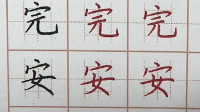 完完完
安安安